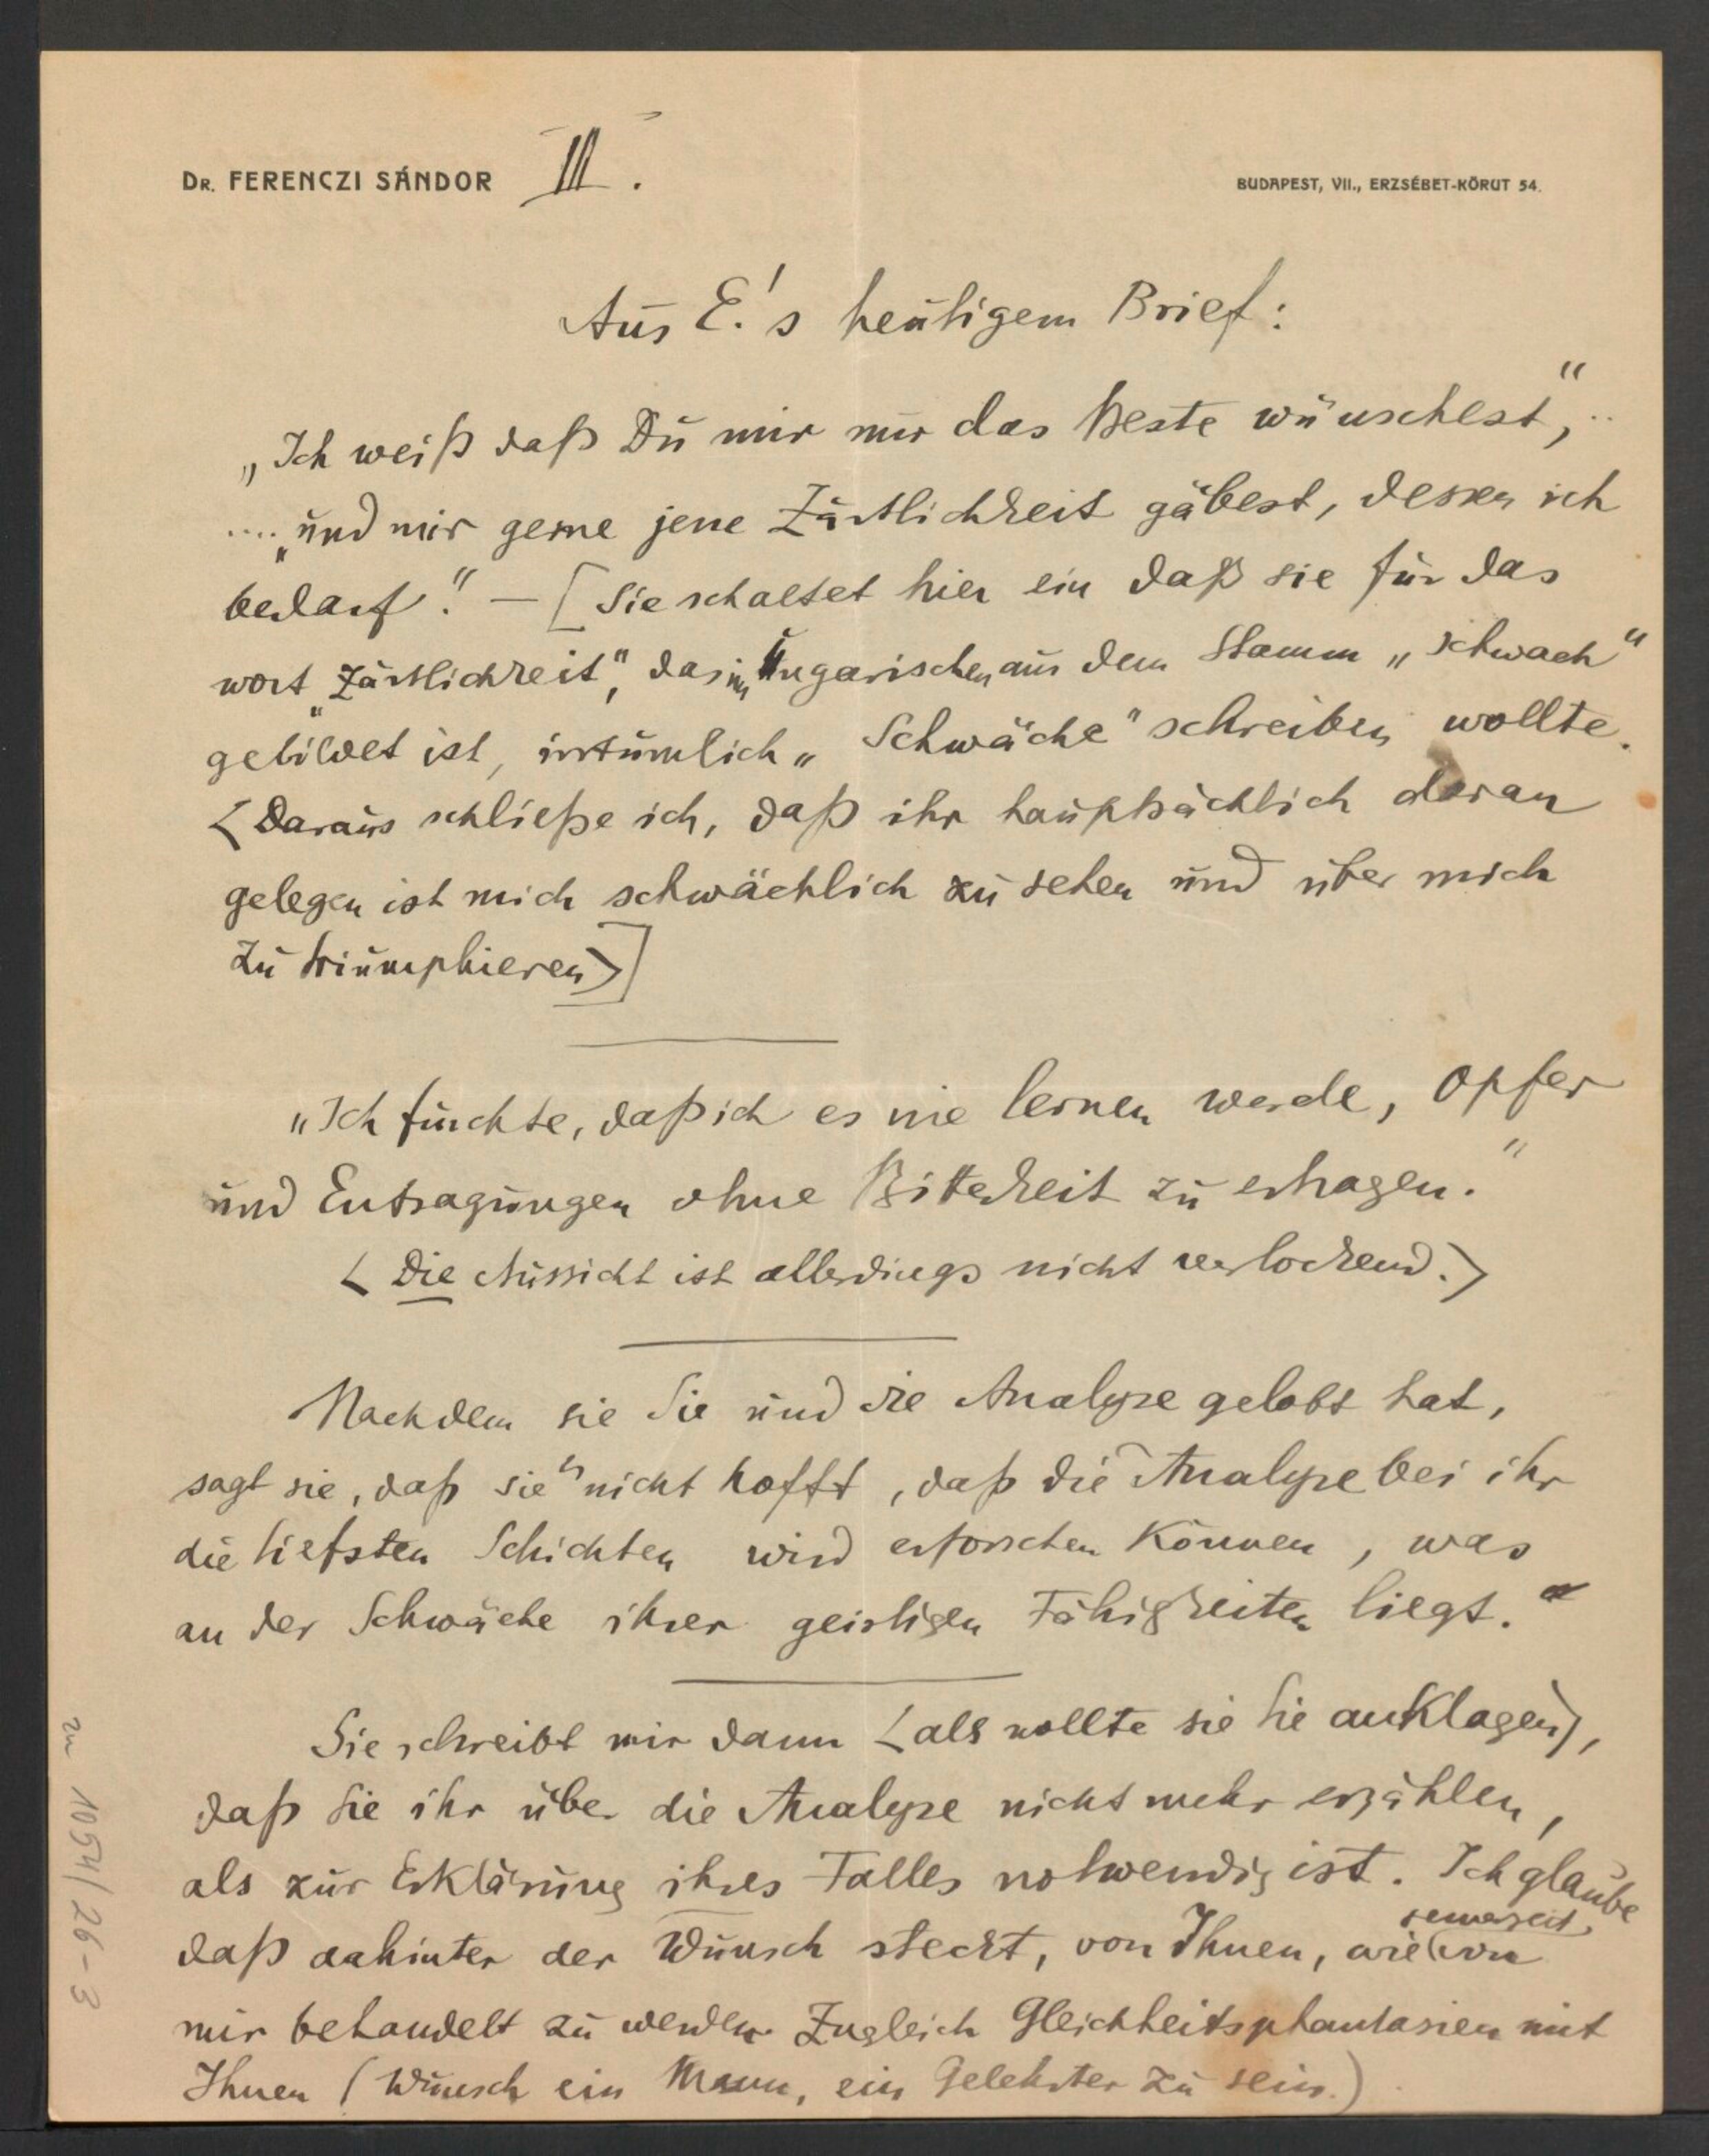 DR. FERENCZI SÁNDOR III.
BUDAPEST, VII., ERZSÉBET-KÖRUT 54.
Aus E.'s heutigem Brief:
„Ich weiß daß Du mir nur das Beste wünschest,“ ..
.... „und mir gerne jene Zärtlichkeit gäbest, dessen ich
bedarf.“ — [Sie schaltet hier ein daß sie für das
wort „Zärtlichkeit“, das im Ungarischen aus dem Stamm „schwach“
gebildet ist, irrtümlich „Schwäche“ schreiben wollte.
<Daraus schließe ich, daß ihr hauptsächlich daran
gelegen ist mich schwächlich zu sehen und über mich
zu triumphieren>]
„Ich fürchte, daß ich es nie lernen werde, Opfer
und Entsagungen ohne Bitterkeit zu ertragen.“
<Die Aussicht ist allerdings nicht verlockend.>
Nachdem sie Sie und die Analyse gelobt hat,
sagt sie, daß sie „nicht hofft, daß die Analyse bei ihr
die tiefsten Schichten wird erforschen können, was
an der Schwäche ihrer geistigen Fähigkeiten liegt.“
Sie schreibt mir dann <als wollte sie Sie anklagen>,
daß Sie ihr über die Analyse nicht mehr erzählen,
als zur Erklärung ihres Falles notwendig ist. Ich glaube
daß dahinter der Wunsch steckt, von Ihnen, wie seinerzeit von
mir behandelt zu werden. Zugleich Gleichheitsphantasien mit
Ihnen (Wunsch ein Mann, ein Gelehrter zu sein.)
1054/26-3